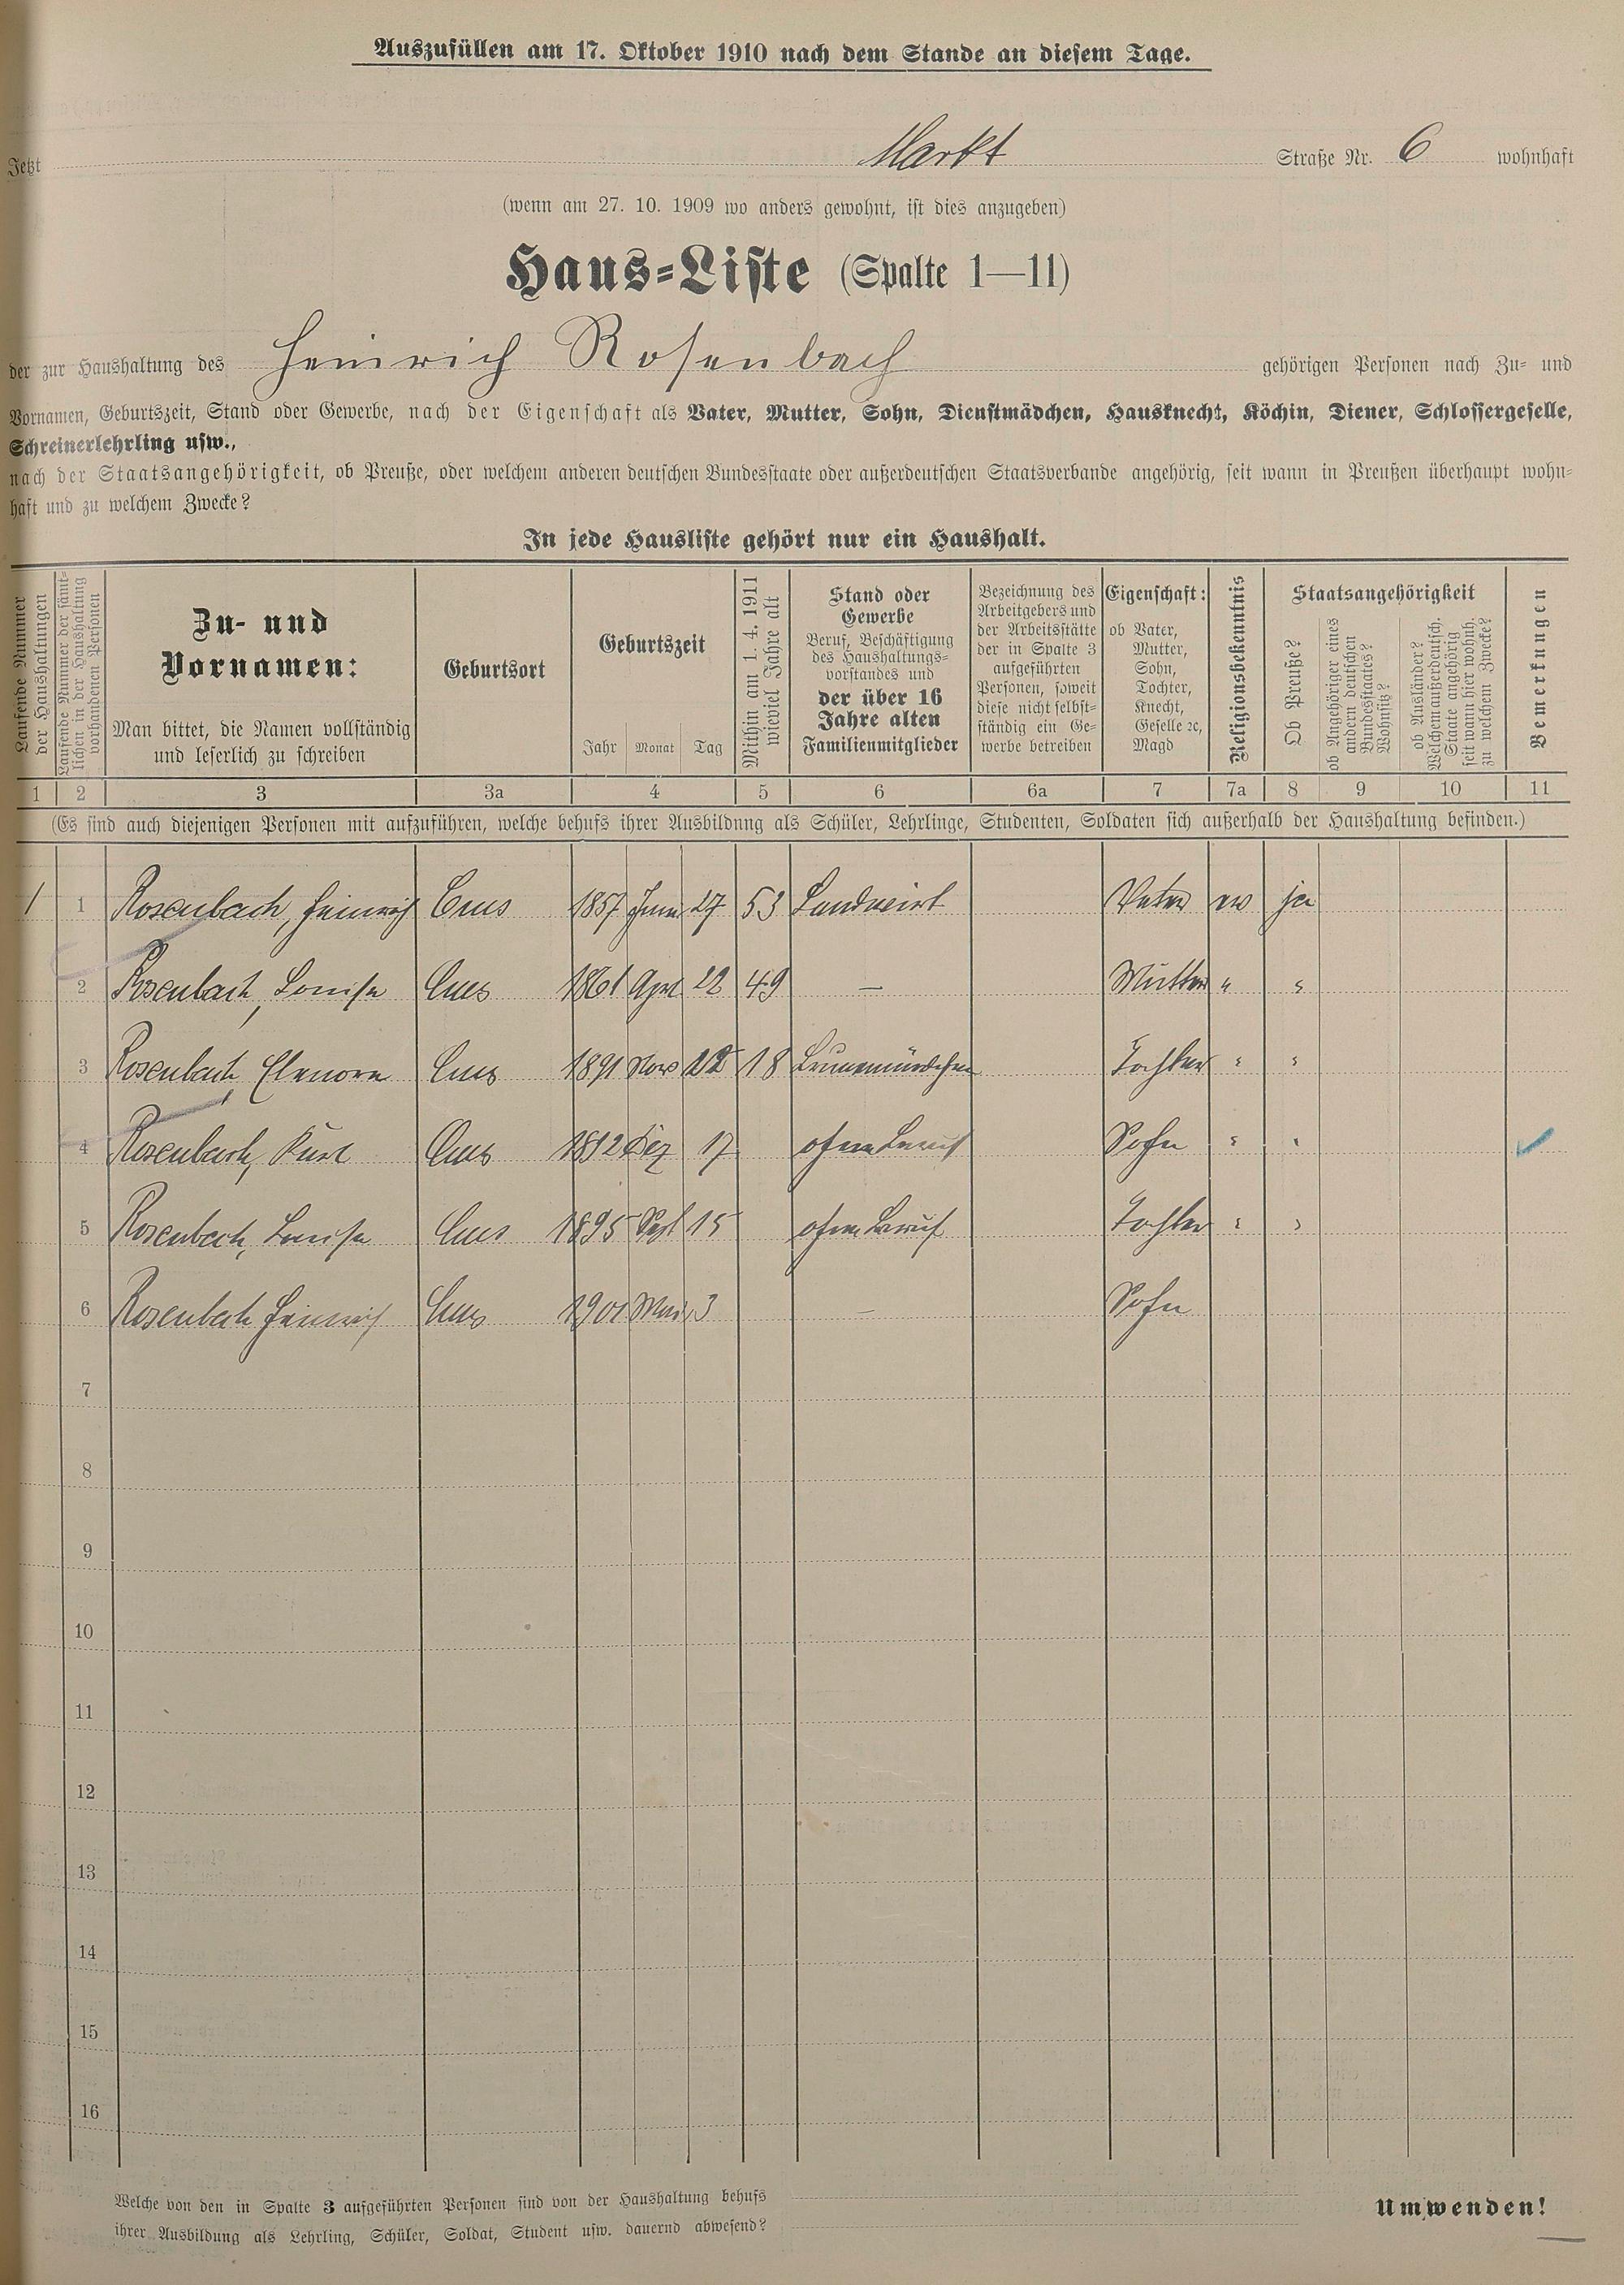 Auszufüllen am 17. Oktober 1910 nach dem Stande an diesem Tage.
Jetzt Markt Straße Nr. 6 wohnhaft
(wenn am 27. 10. 1909 wo anders gewohnt, ist dies anzugeben)
Haus-Liste (Spalte 1—11)
der zur Haushaltung des Heinrich Rosenbach gehörigen Personen nach Zu- und
Vornamen, Geburtszeit, Stand oder Gewerbe, nach der Eigenschaft als Vater, Mutter, Sohn, Dienstmädchen, Hausknecht, Köchin, Diener, Schlossergeselle,
Schreinerlehrling usw.,
nach der Staatsangehörigkeit, ob Preuße, oder welchem anderen deutschen Bundesstaate oder außerdeutschen Staatsverbande angehörig, seit wann in Preußen überhaupt wohn-
haft und zu welchem Zwecke?
In jede Hausliste gehört nur ein Haushalt.
Laufende Nummer
der Haushaltungen
Laufende Nummer der sämt-
lichen in der Haushaltung
vorhandenen Personen
Zu- und
Vornamen:
Man bittet, die Namen vollständig
und leserlich zu schreiben
Geburtsort
Geburtszeit
Jahr Monat Tag
Mithin am 1. 4. 1911
wieviel Jahre alt
Stand oder
Gewerbe
Beruf, Beschäftigung
des Haushaltungs-
vorstandes und
der über 16
Jahre alten
Familienmitglieder
Bezeichnung des
Arbeitgebers und
der Arbeitsstätte
der in Spalte 3
aufgeführten
Personen, soweit
diese nicht selbst-
ständig ein Ge-
werbe betreiben
Eigenschaft:
ob Vater,
Mutter,
Sohn,
Tochter,
Knecht,
Geselle ꝛc,
Magd
Religionsbekenntnis
Staatsangehörigkeit
Ob Preuße?
ob Angehöriger eines
andern deutschen
Bundesstaates?
Wohnsitz?
ob Ausländer?
Welchem außerdeutsch.
Staate angehörig
seit wann hier wohnh.
zu welchem Zwecke?
Bemerkungen
1 2 3 3a 4 5 6 6a 7 7a 8 9 10 11
(Es sind auch diejenigen Personen mit aufzuführen, welche behufs ihrer Ausbildung als Schüler, Lehrlinge, Studenten, Soldaten sich außerhalb der Haushaltung befinden.)
1 1 Rosenbach, Heinrich Ems 1857 27 53 Landwirt Vater ev ja
2 Rosenbach, Louise Ems 1861 Aprl 22 49 — Mutter " "
3 Rosenbach, Elenore Ems 1891 Nov 22 18 Tochter " "
4 Rosenbach, Kurt Ems 1892 Dez 17 ohne Beruf Sohn " "
5 Rosenbach, Louise Ems 1895 Sept 15 ohne Beruf Tochter " "
6 Rosenbach Heinrich Ems 1901 Mai 3 — Sohn
7
8
9
10
11
12
13
14
15
16
Welche von den in Spalte 3 aufgeführten Personen sind von der Haushaltung behufs
ihrer Ausbildung als Lehrling, Schüler, Soldat, Student usw. dauernd abwesend?
Umwenden!